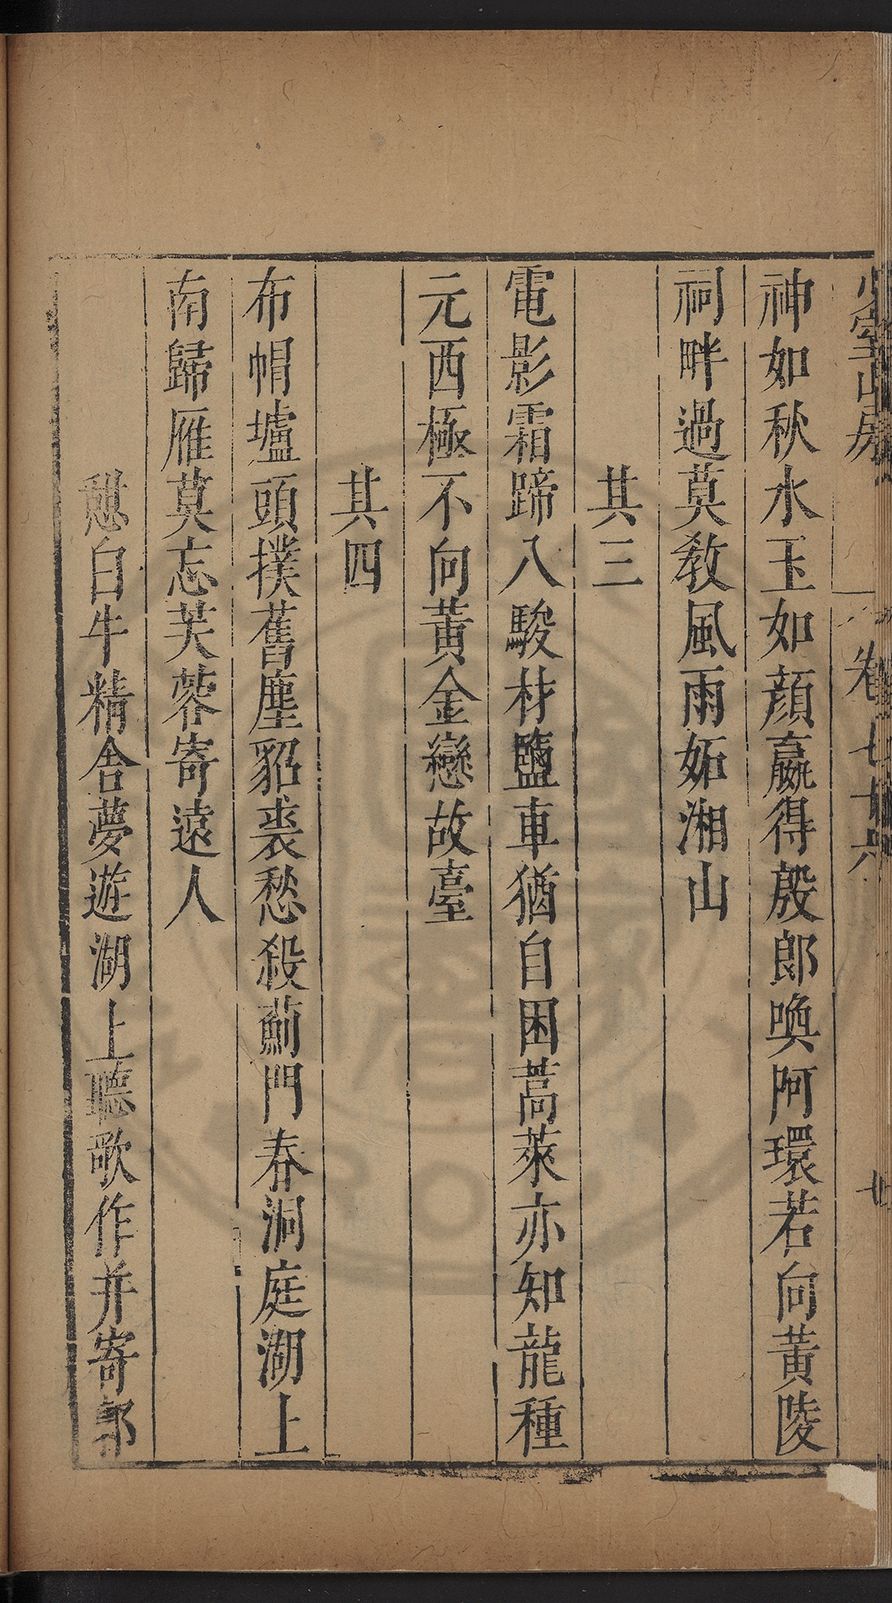 少室山房 卷七十六 七
神如秋水玉如顔嬴得殷郎喚阿環若向黃陵
祠畔過莫教風雨妬湘山
其三
電影霜蹄八駿材鹽車猶自困蒿萊亦知龍種
元西極不向黃金戀故臺
其四
布帽壚頭撲舊塵貂裘愁殺薊門春洞庭湖上
南歸雁莫忘芙蓉寄遠人
憩白牛精舍夢遊湖上聽歌作并寄郭